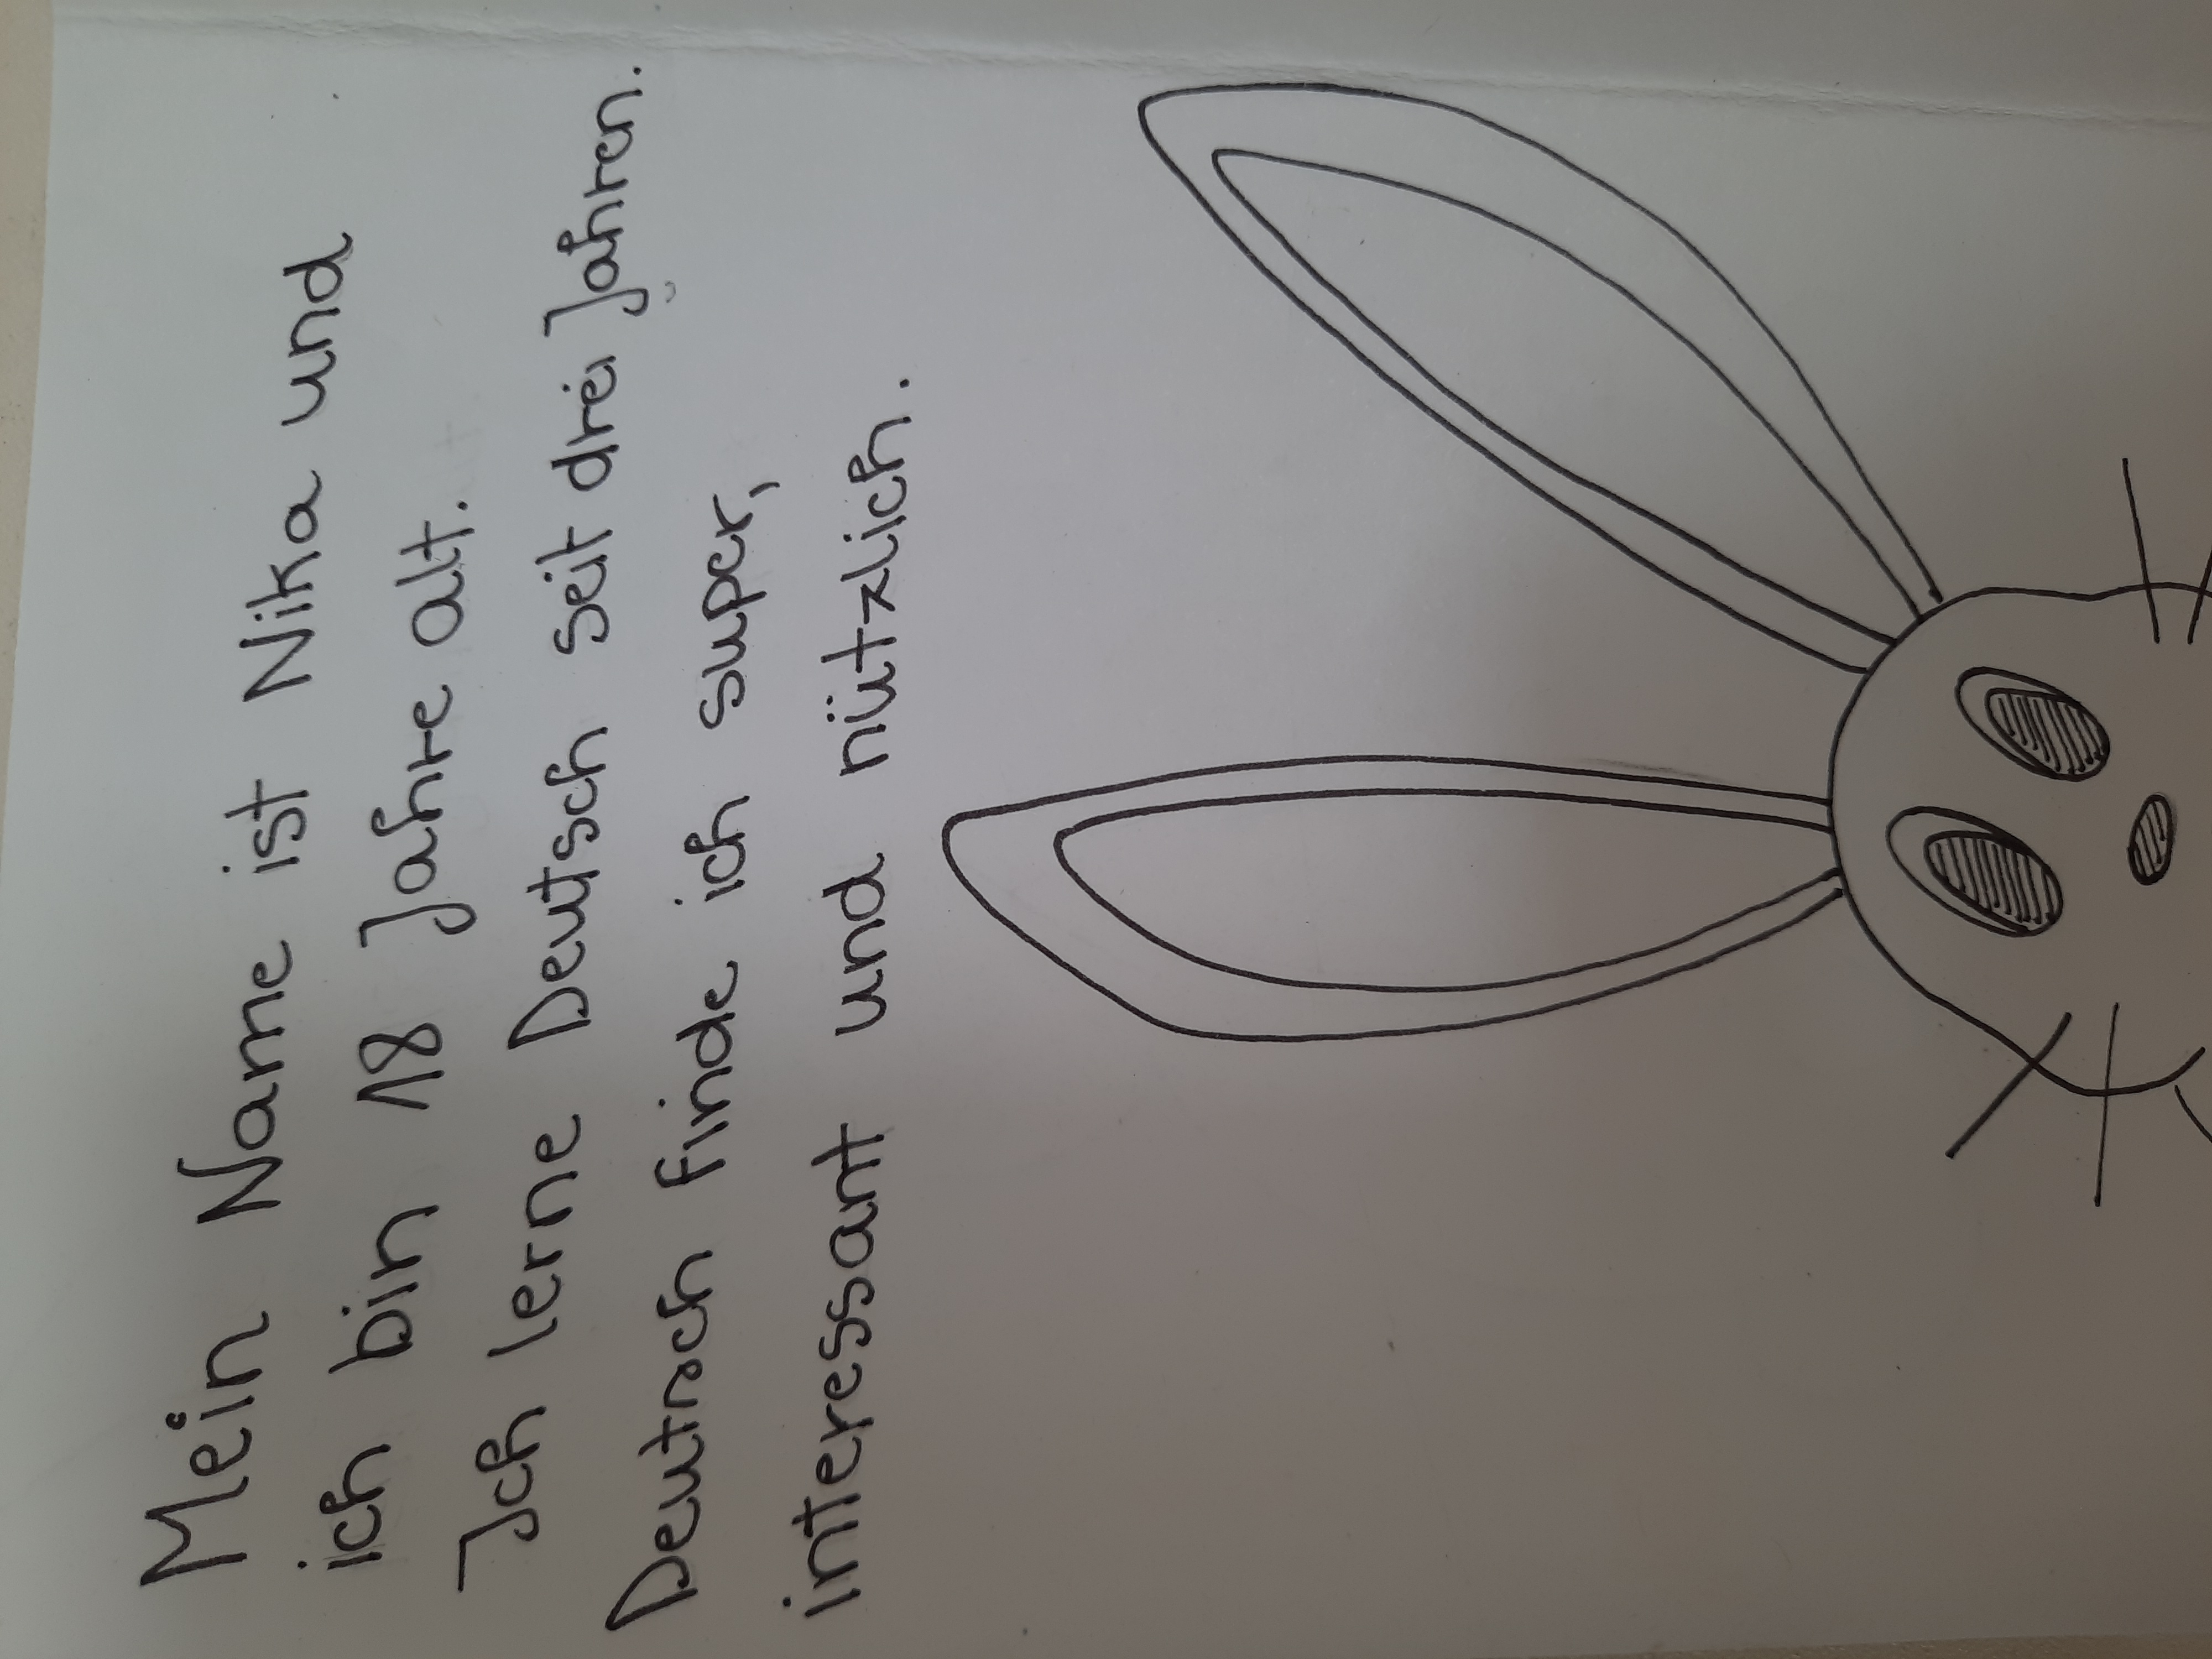 Mein Name ist Nika und
ich bin 18 Jahre alt.
Ich lerne Deutsch seit drei Jahren.
Deutsch finde ich super,
interessant und nützlich.